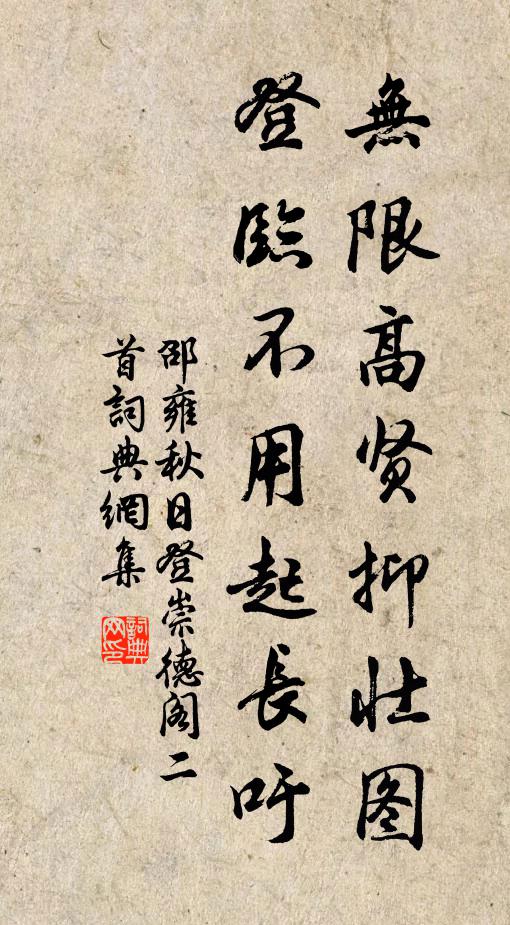 無限高贤抑壮图
登臨不用起長吁
邵雍秋日登崇德阁二
首詞典網集
詞典网印